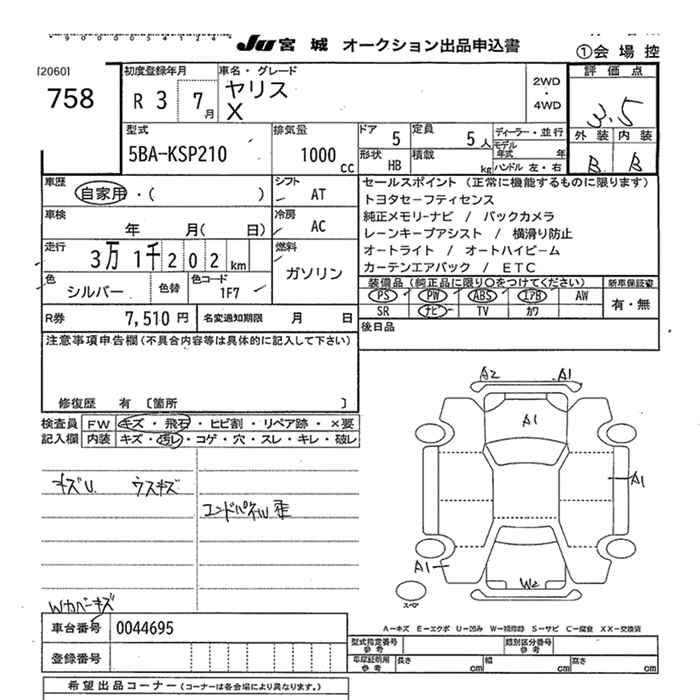 JU 宮城 オークション出品申込書
①会場控
[2060]
758
初度登録年月
R 3 7月
車名・グレード
ヤリス
X
2WD
・
4WD
評価点
3.5
外装 内装
B B
型式
5BA-KSP210
排気量
1000 cc
ドア 5
定員 5人
ディーラー・並行
モデル年式 年
形状 HB
積載 kg
ハンドル 左・右
車歴
自家用・( )
シフト
AT
車検
年 月( 日)
冷房
AC
走行
3万 1千 2 0 2 km
燃料
ガソリン
色
シルバー
色替
色コード
1F7
R券 7,510 円
名変通知期限 月 日
セールスポイント (正常に機能するものに限ります)
トヨタセーフティセンス
純正メモリーナビ / バックカメラ
レーンキープアシスト / 横滑り防止
オートライト / オートハイビーム
カーテンエアバック / ETC
装備品(純正品に限り○をつけてください)
新車保証書
PS PW ABS エアB AW
有・無
SR ナビ TV カワ
後日品
注意事項申告欄(不具合内容等は具体的に記入して下さい)
修復歴 有 〔箇所 〕
検査員 FW キズ・飛石・ヒビ割・リペア跡・×要
記入欄 内装 キズ・汚レ・コゲ・穴・スレ・キレ・破レ
キズU. ウスキズ
エンドパネル歪
Wカバーキズ
A2 A1
A1
A1
A1
W2
スペア
A－キズ E－エクボ U－凹み W－補修跡 S－サビ C－腐食 XX－交換済
車台番号 0044695
登録番号
型式指定番号 参考
類別区分番号 参考
車庫証明用 参考
長さ cm 幅 cm 高さ cm
希望出品コーナー (コーナーは各会場により異なります。)